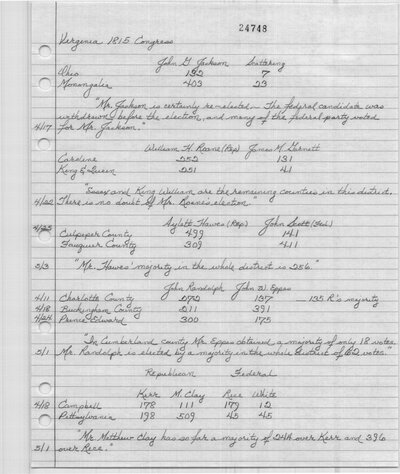 24748
Virginia 1815 Congress
John G Jackson Scattering
Ohio 192 7
Monongalia 403 23
"Mr. Jackson is certainly re-elected - The Federal candidate was
withdrawn before the election, and many of the federal party voted
4/17 for Mr. Jackson."
William H. Roane (Rep) James M. Garnett
Caroline 252 131
King & Queen 251 41
"Essex and King William are the remaining counties in this district.
4/22 There is no doubt of Mr. Roane's election."
4/25 Aylett Hawes (Rep) John Scott (Fed)
Culpeper County 499 141
Fauquier County 309 411
5/3 "Mr. Hawes' majority in the whole district is 256."
John Randolph John W. Eppes
4/11 Charlotte County 272 137 - 135 R's majority
4/18 Buckingham County 211 391
4/24 Prince Edward 300 175
"In Cumberland county Mr. Eppes obtained a majority of only 18 votes.
5/1 Mr. Randolph is elected by a majority in the whole district of votes."
Republican Federal
Kerr M. Clay Rice White
4/18 Campbell 178 111 179 12
Pittsylvania 198 509 45 45
"Mr Matthew Clay has so far a majority of 244 over Kerr and 396
5/1 over Rice."